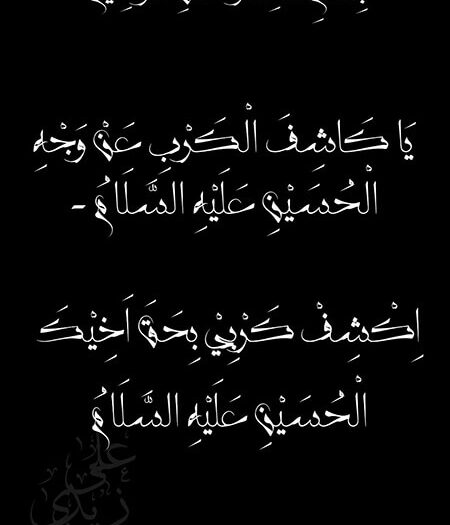 يَا كَاشِفَ الْكَرْبِ عَنْ وَجْهِ
الْحُسَيْنِ عَلَيْهِ السَّلَامُ -
اِكْشِفْ كَرْبِيْ بِحَقِّ اَخِيْكَ
الْحُسَيْنِ عَلَيْهِ السَّلَامُ
علی
زیدی